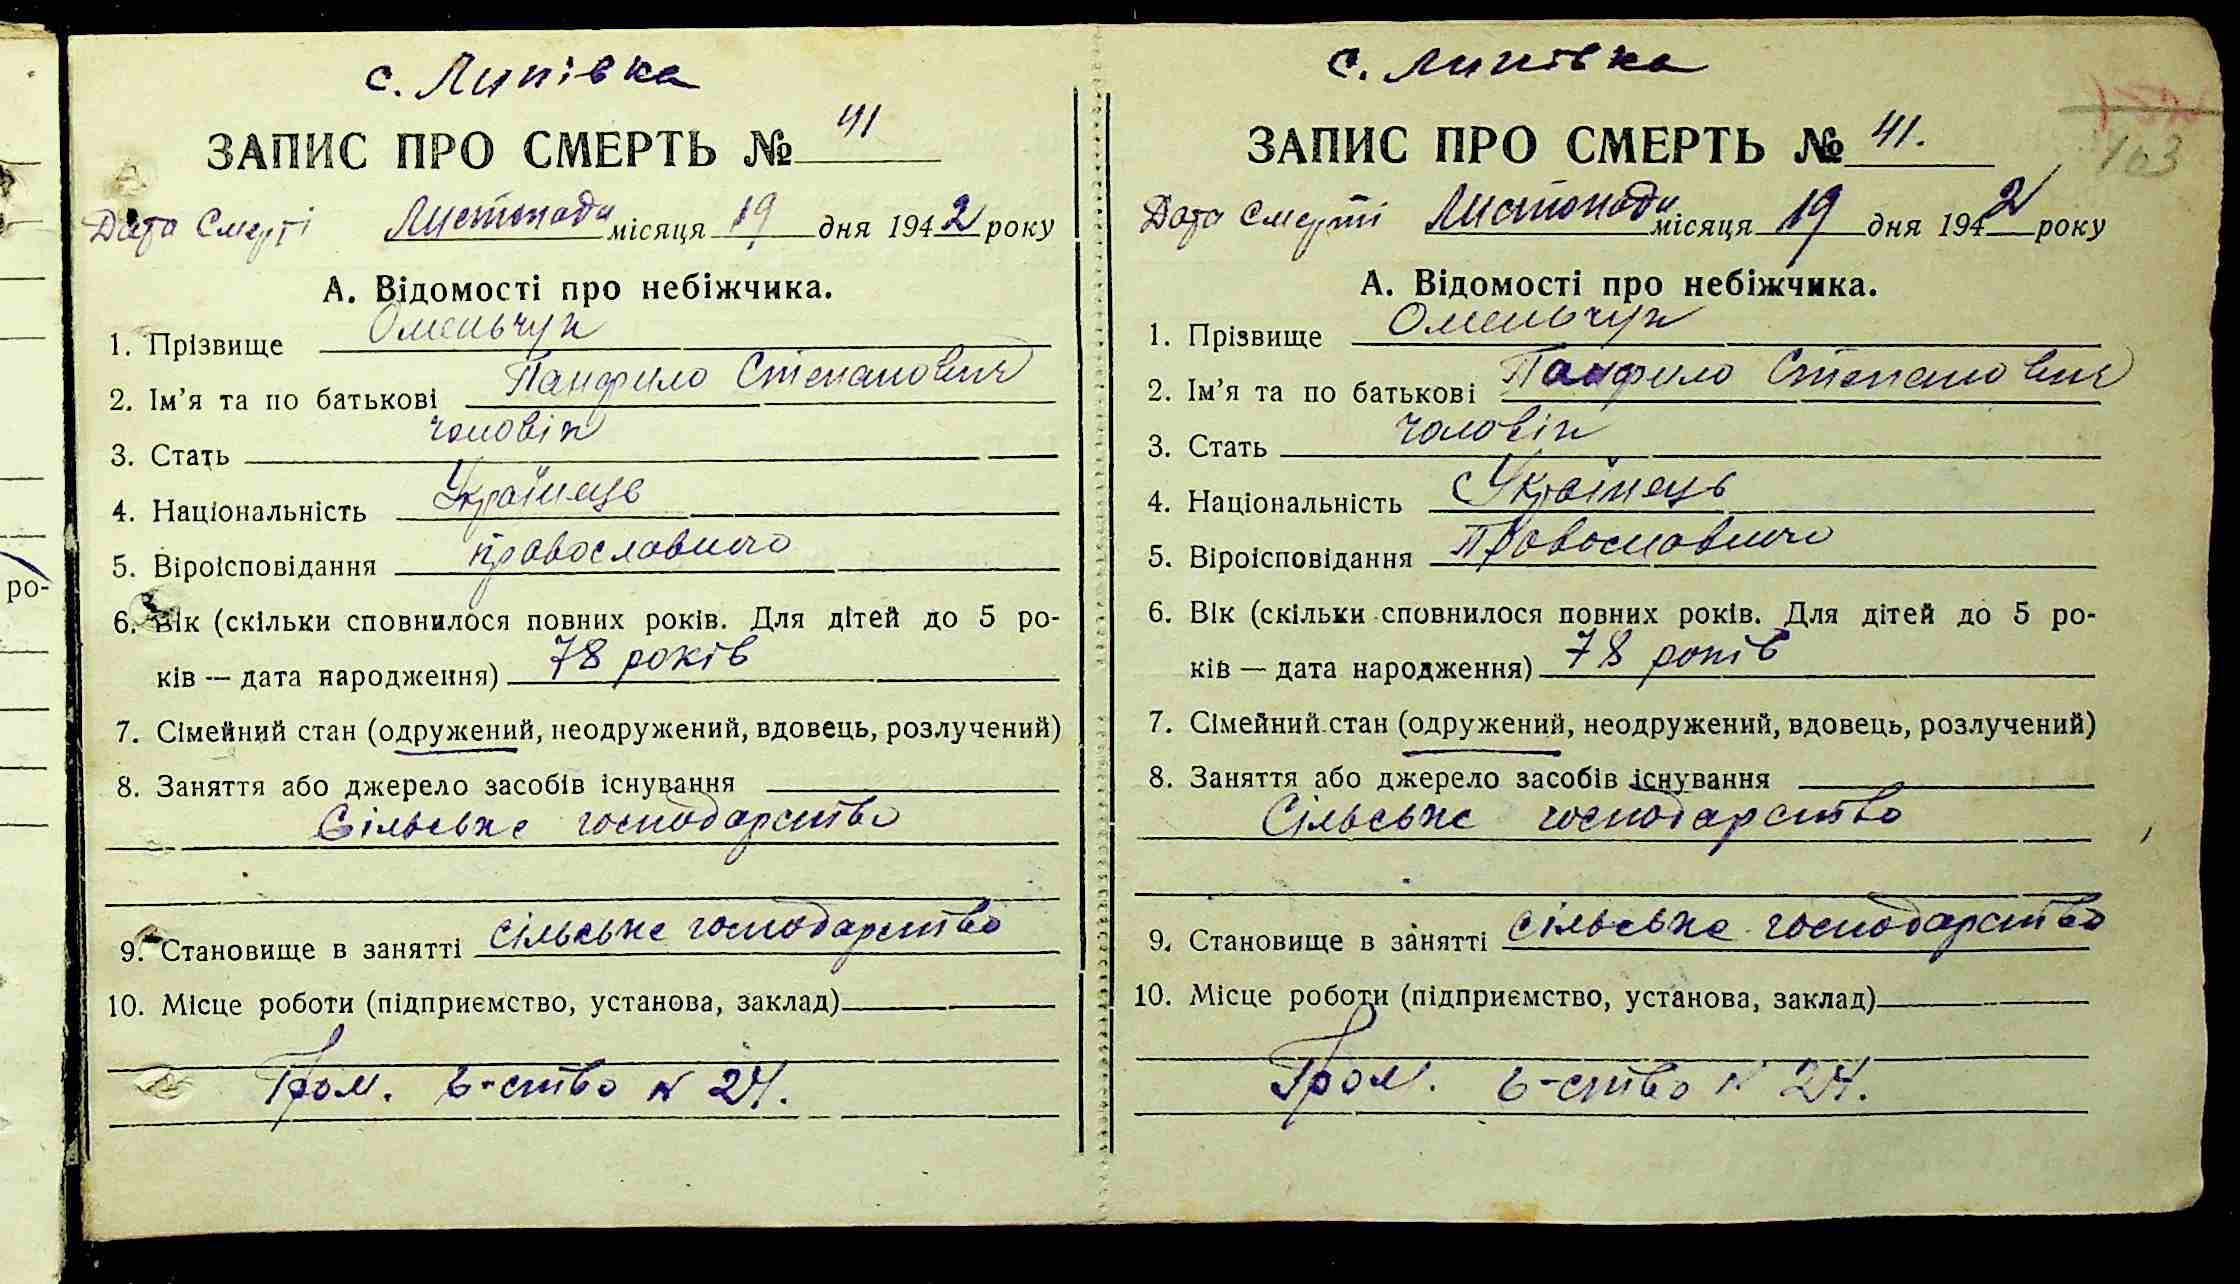 ро-
с. Липівка
ЗАПИС ПРО СМЕРТЬ № 41
Дата Смерті Листопада місяця 19 дня 1942 року
А. Відомості про небіжчика.
1. Прізвище Омельчук
2. Ім'я та по батькові Панфило Степанович
3. Стать чоловік
4. Національність Українець
5. Віроісповідання православного
6. Вік (скільки сповнилося повних років. Для дітей до 5 ро-
ків — дата народження) 78 років
7. Сімейний стан (одружений, неодружений, вдовець, розлучений)
8. Заняття або джерело засобів існування
Сільське господарство
9. Становище в занятті сільське господарство
10. Місце роботи (підприємство, установа, заклад)
Гром. г-ство № 24.
с. Липівка
103
ЗАПИС ПРО СМЕРТЬ № 41.
Дата Смерті Листопада місяця 19 дня 1942 року
А. Відомості про небіжчика.
1. Прізвище Омельчук
2. Ім'я та по батькові Панфило Степанович
3. Стать чоловік
4. Національність Українець
5. Віроісповідання Православного
6. Вік (скільки сповнилося повних років. Для дітей до 5 ро-
ків — дата народження) 78 років
7. Сімейний стан (одружений, неодружений, вдовець, розлучений)
8. Заняття або джерело засобів існування
Сільське господарство
9. Становище в занятті сільське господарство
10. Місце роботи (підприємство, установа, заклад)
Гром. г-ство № 24.